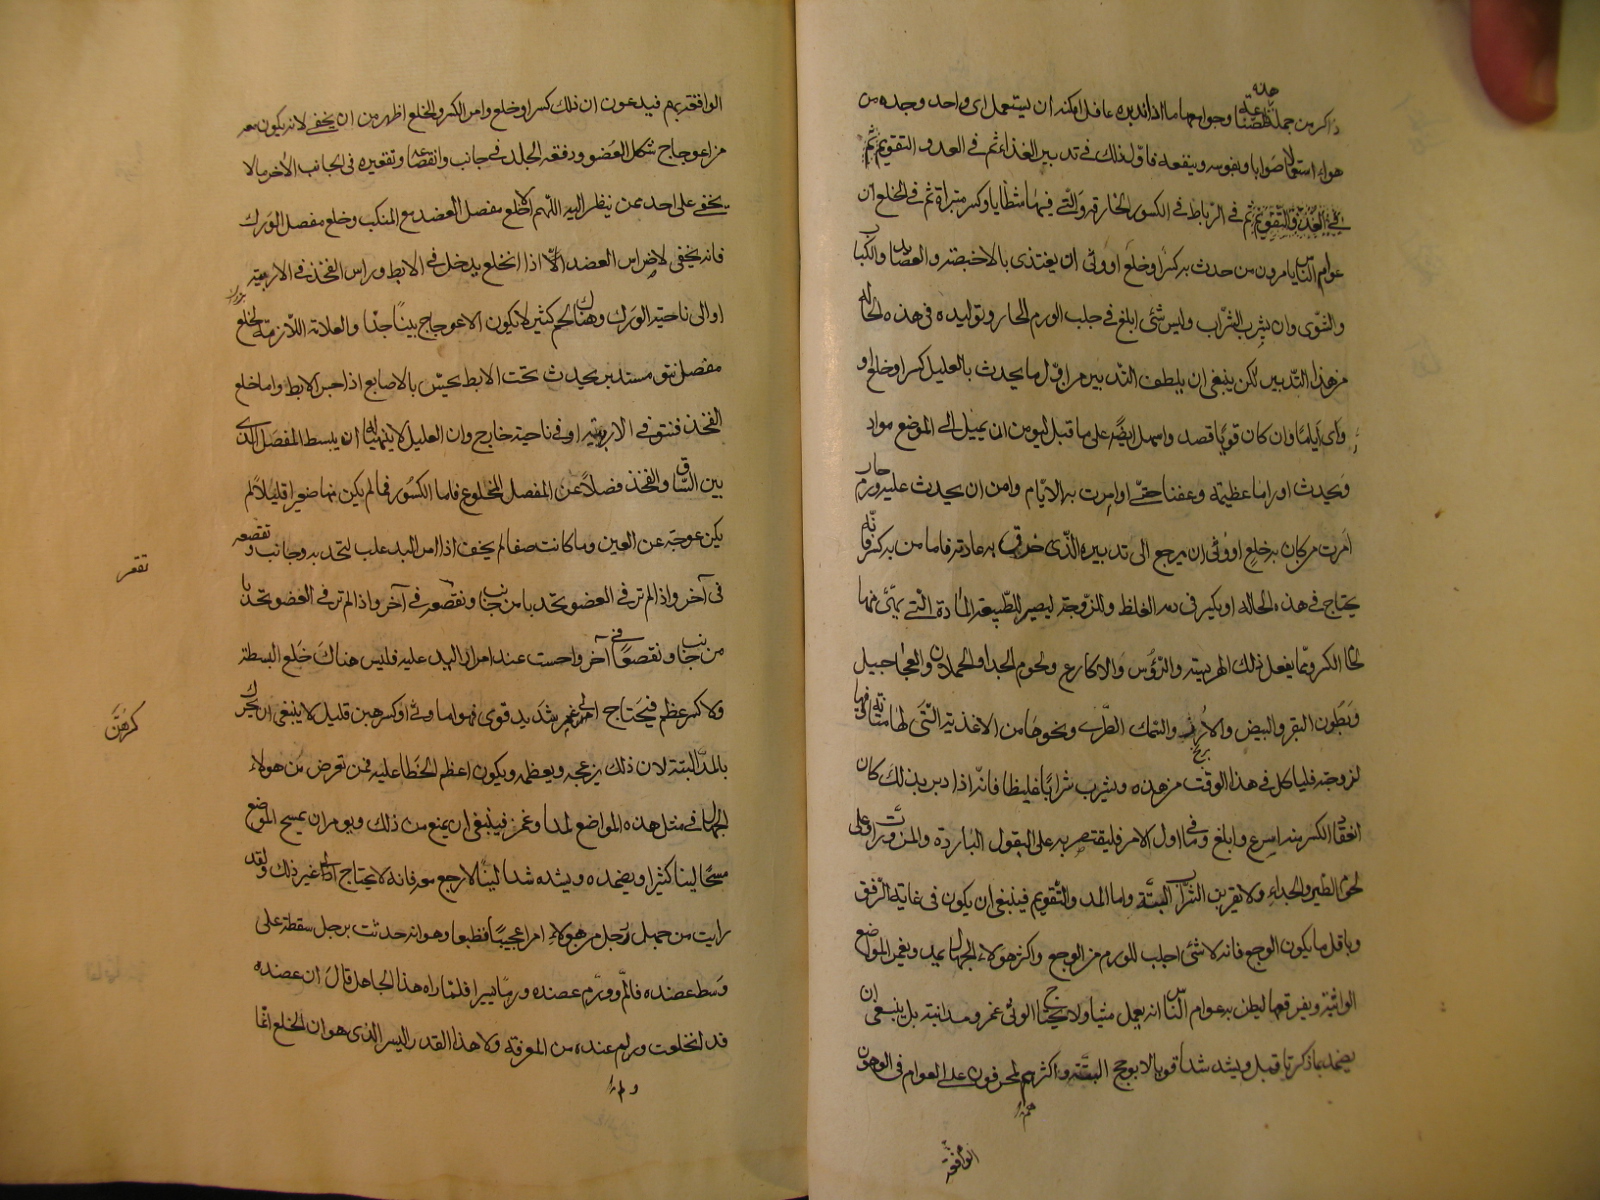 هذه
ذاكر من جملة علة وجوامعها ما اذا تدبره عاقل امكنه ان يستعمل اى واحد وجده من
هواه استعمالا صوابا وينفعه فاول ذلك فى تدبير الغذاء ثم فى العدو التقويم ثم
ثم فى الرباط فى الكسور الخارقة والتى فيها شظايا وكسر متبراة ثم فى الخلع ان
عوام الناس يامرون من حدث به كسر او خلع او وثى ان يغتذى بالاخبصة والعصايد والكباب
والشوى وان يشرب الشراب وليس شئ ابلغ فى جلب الورم الحار وتوليده فى هذه الحاله
من هذا التدبير لكن ينبغى ان يلطف التدبير من اول ما يحدث بالعليل كسر او خلع او
وثى اياما وان كان قويا فصد واسهل ايضا على ما قبل ليومن ان يميل الى الموضع مواد
ويحدث اوراما عظيمة وعفنا حتى اذا مرت به الايام وامن ان يحدث عليه ورم حار
امرت من كان به خلع او وثى ان يرجع الى تدبيره الذى جرت به عادته فاما من به كسر فانه
يحتاج فى هذه الحاله ان يكثر فى دمه الغلظ واللزوجة ليصير للطبيعة المادة التى يهئ منها
لحام الكسر ومما يفعل ذلك الهريسة والرؤس والاكارع ولحوم الجدا والحملان والعجاجيل
وبطون البقر والبيض والارز والسمك الطرى ونحوها من الاغذية التى لها متانة وفيها
لزوجة فلياكل فى هذا الوقت من هذه ويشرب شرابا غليظا فانه اذا دبر بذلك كان
انعقاد الكسر منه اسرع وابلغ وما فى اول الامر فليقتصر به على البقول الباردة والمزورات وعلى
لحوم الطير والجداء ولا يقربن الشراب البتة واما المد والتقويم فينبغى ان يكون فى غاية الرفق
وباقل ما يكون الوجع فانه لا شئ اجلب للورم من الوجع واكثر هولاء الجهال يمد ويغمز المواضع
الواثية ويفرقعها ليظن به عوام الناس انه يعمل شيا ولا يحتاج الوثى غمز ومد البتة بل ينبغى ان
يضمد بما ذكرنا قبل ويشد شدا قويا لا يوجع البتة واكثرهم يمخرقون على العوام فى الوجوه
الواقعة
الواقعة بهم فيدعون ان ذلك كسر او خلع وامر الكسر والخلع اظهر من ان يخفى لانه يكون معه
من اعوجاج شكل العضو ودفقه الجلد فى جانب وانقصاعه وتقعيره فى الجانب الآخر ما لا
يخفى على احد ممن ينظر اليه اللهم الا خلع مفصل العضد مع المنكب وخلع مفصل الورك
فانه يخفى لان راس العضد اذا انخلع يدخل فى الابط وراس الفخذ فى الاربية
او الى ناحية الورك وهناك لحم كثير لا يكون الاعوجاج بينا جدا والعلامة اللازمة لخلع
مفصل نتو مستدير يحدث تحت الابط يحس بالاصابع اذا جس الابط واما خلع
الفخذ فنتو فى الاربية او فى ناحية خارج وان العليل لا يتهيا له ان يبسط المفصل الذى
بين الساق والفخذ فضلا عن المفصل المخلوع فاما الكسور فما لم يكن منها صغيرا قليلا لم
يكن عوجه عن العين وما كانت صفا لم يخف اذا امر اليد عليه لتحدبه وجانب وتقصعه
فى آخر واذا لم تر فى العضو تحدبا من جانب وتقصعه فى آخر واذا لم تر فى العضو تحدبا
من جانب وتقصعا فى آخر واحست عند امرار اليد عليه فليس هناك خلع البسطة
ولا كسر عظم فيحتاج الى غمز شديد قوى فهو اما وثى او كسر هين قليل لا ينبغى ان يحرك
بالمد البتة لان ذلك يزعجه ويعظمه ويكون اعظم الخطا عليه فمن تعرض من هولاء
الجهال فى مثل هذه المواضع لمد او غمز فينبغى ان يمنع من ذلك ويومر ان يمسح الموضع
مسحا لينا كثيرا ويضمده ويشده شدا لينا لا رجع معه فانه لا يحتاج الى غير ذلك ولقد
رايت من جهل رجل من هولاء امرا عجيبا فظيعا وهو انه حدثت برجل سقطة على
وسط عضده فالم وورم عضده ورما يسيرا فلما راه هذا الجاهل قال ان عضده
قد انخلعت ولم عنده من المعرفة ولا هذا القدر اليسير الذى هو ان الخلع انما
تقعر